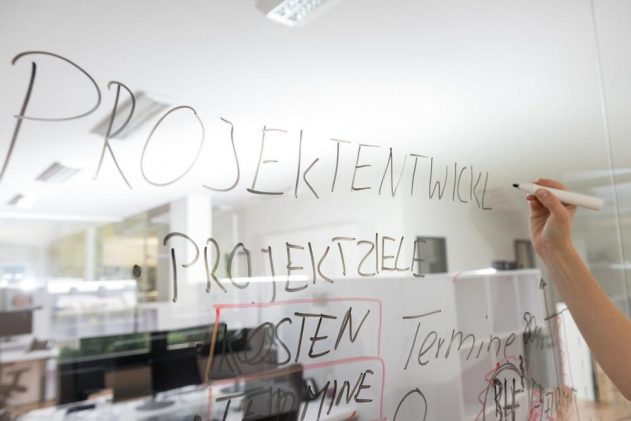 PROJEKTENTWICKL
PROJEKTZIELE
KOSTEN
Termine
TERMINE